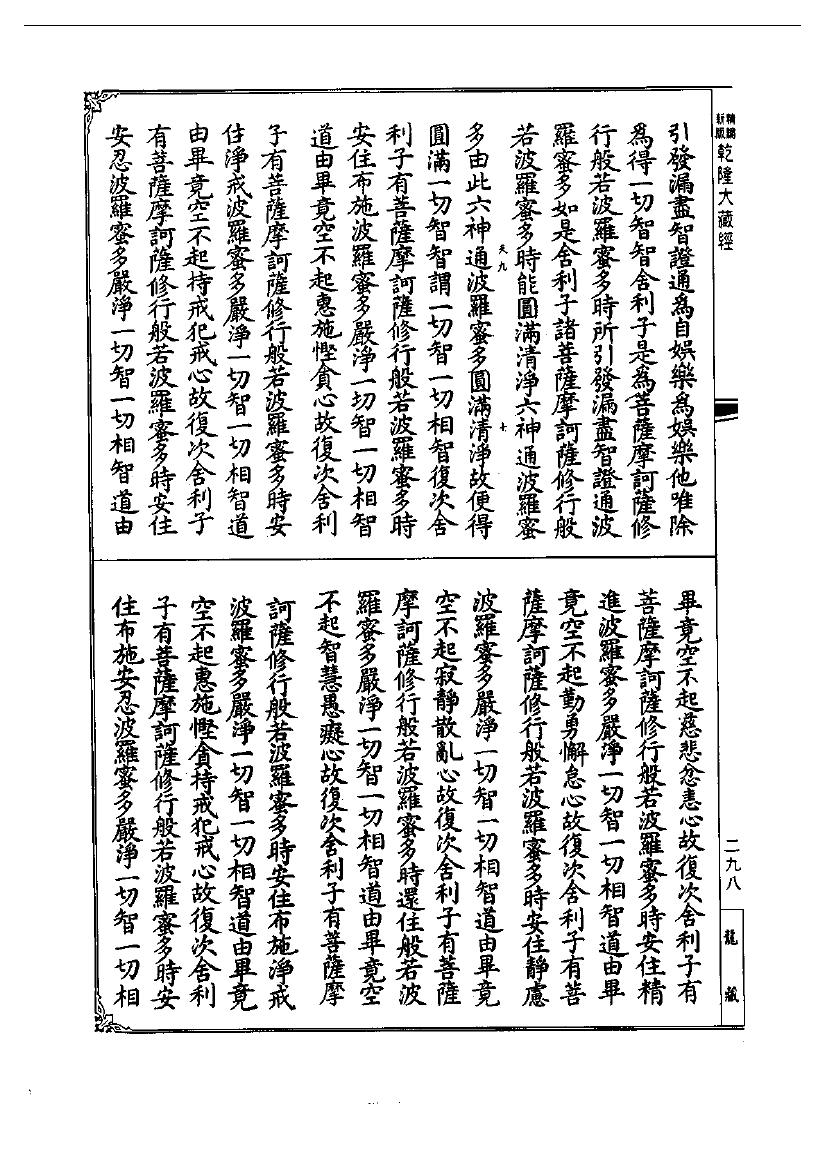 精繕
新版
乾隆大藏經
引發漏盡智證通為自娛樂為娛樂他唯除
為得一切智智舍利子是為菩薩摩訶薩修
行般若波羅蜜多時所引發漏盡智證通波
羅蜜多如是舍利子諸菩薩摩訶薩修行般
若波羅蜜多時能圓滿清淨六神通波羅蜜
多由此六神通波羅蜜多圓滿清淨故便得
圓滿一切智智謂一切智一切相智復次舍
利子有菩薩摩訶薩修行般若波羅蜜多時
安住布施波羅蜜多嚴淨一切智一切相智
道由畢竟空不起惠施慳貪心故復次舍利
子有菩薩摩訶薩修行般若波羅蜜多時安
住淨戒波羅蜜多嚴淨一切智一切相智道
由畢竟空不起持戒犯戒心故復次舍利子
有菩薩摩訶薩修行般若波羅蜜多時安住
安忍波羅蜜多嚴淨一切智一切相智道由
畢竟空不起慈悲忿恚心故復次舍利子有
菩薩摩訶薩修行般若波羅蜜多時安住精
進波羅蜜多嚴淨一切智一切相智道由畢
竟空不起勤勇懈怠心故復次舍利子有菩
薩摩訶薩修行般若波羅蜜多時安住靜慮
波羅蜜多嚴淨一切智一切相智道由畢竟
空不起寂靜散亂心故復次舍利子有菩薩
摩訶薩修行般若波羅蜜多時還住般若波
羅蜜多嚴淨一切智一切相智道由畢竟空
不起智慧愚癡心故復次舍利子有菩薩摩
訶薩修行般若波羅蜜多時安住布施淨戒
波羅蜜多嚴淨一切智一切相智道由畢竟
空不起惠施慳貪持戒犯戒心故復次舍利
子有菩薩摩訶薩修行般若波羅蜜多時安
住布施安忍波羅蜜多嚴淨一切智一切相
二九八
龍藏